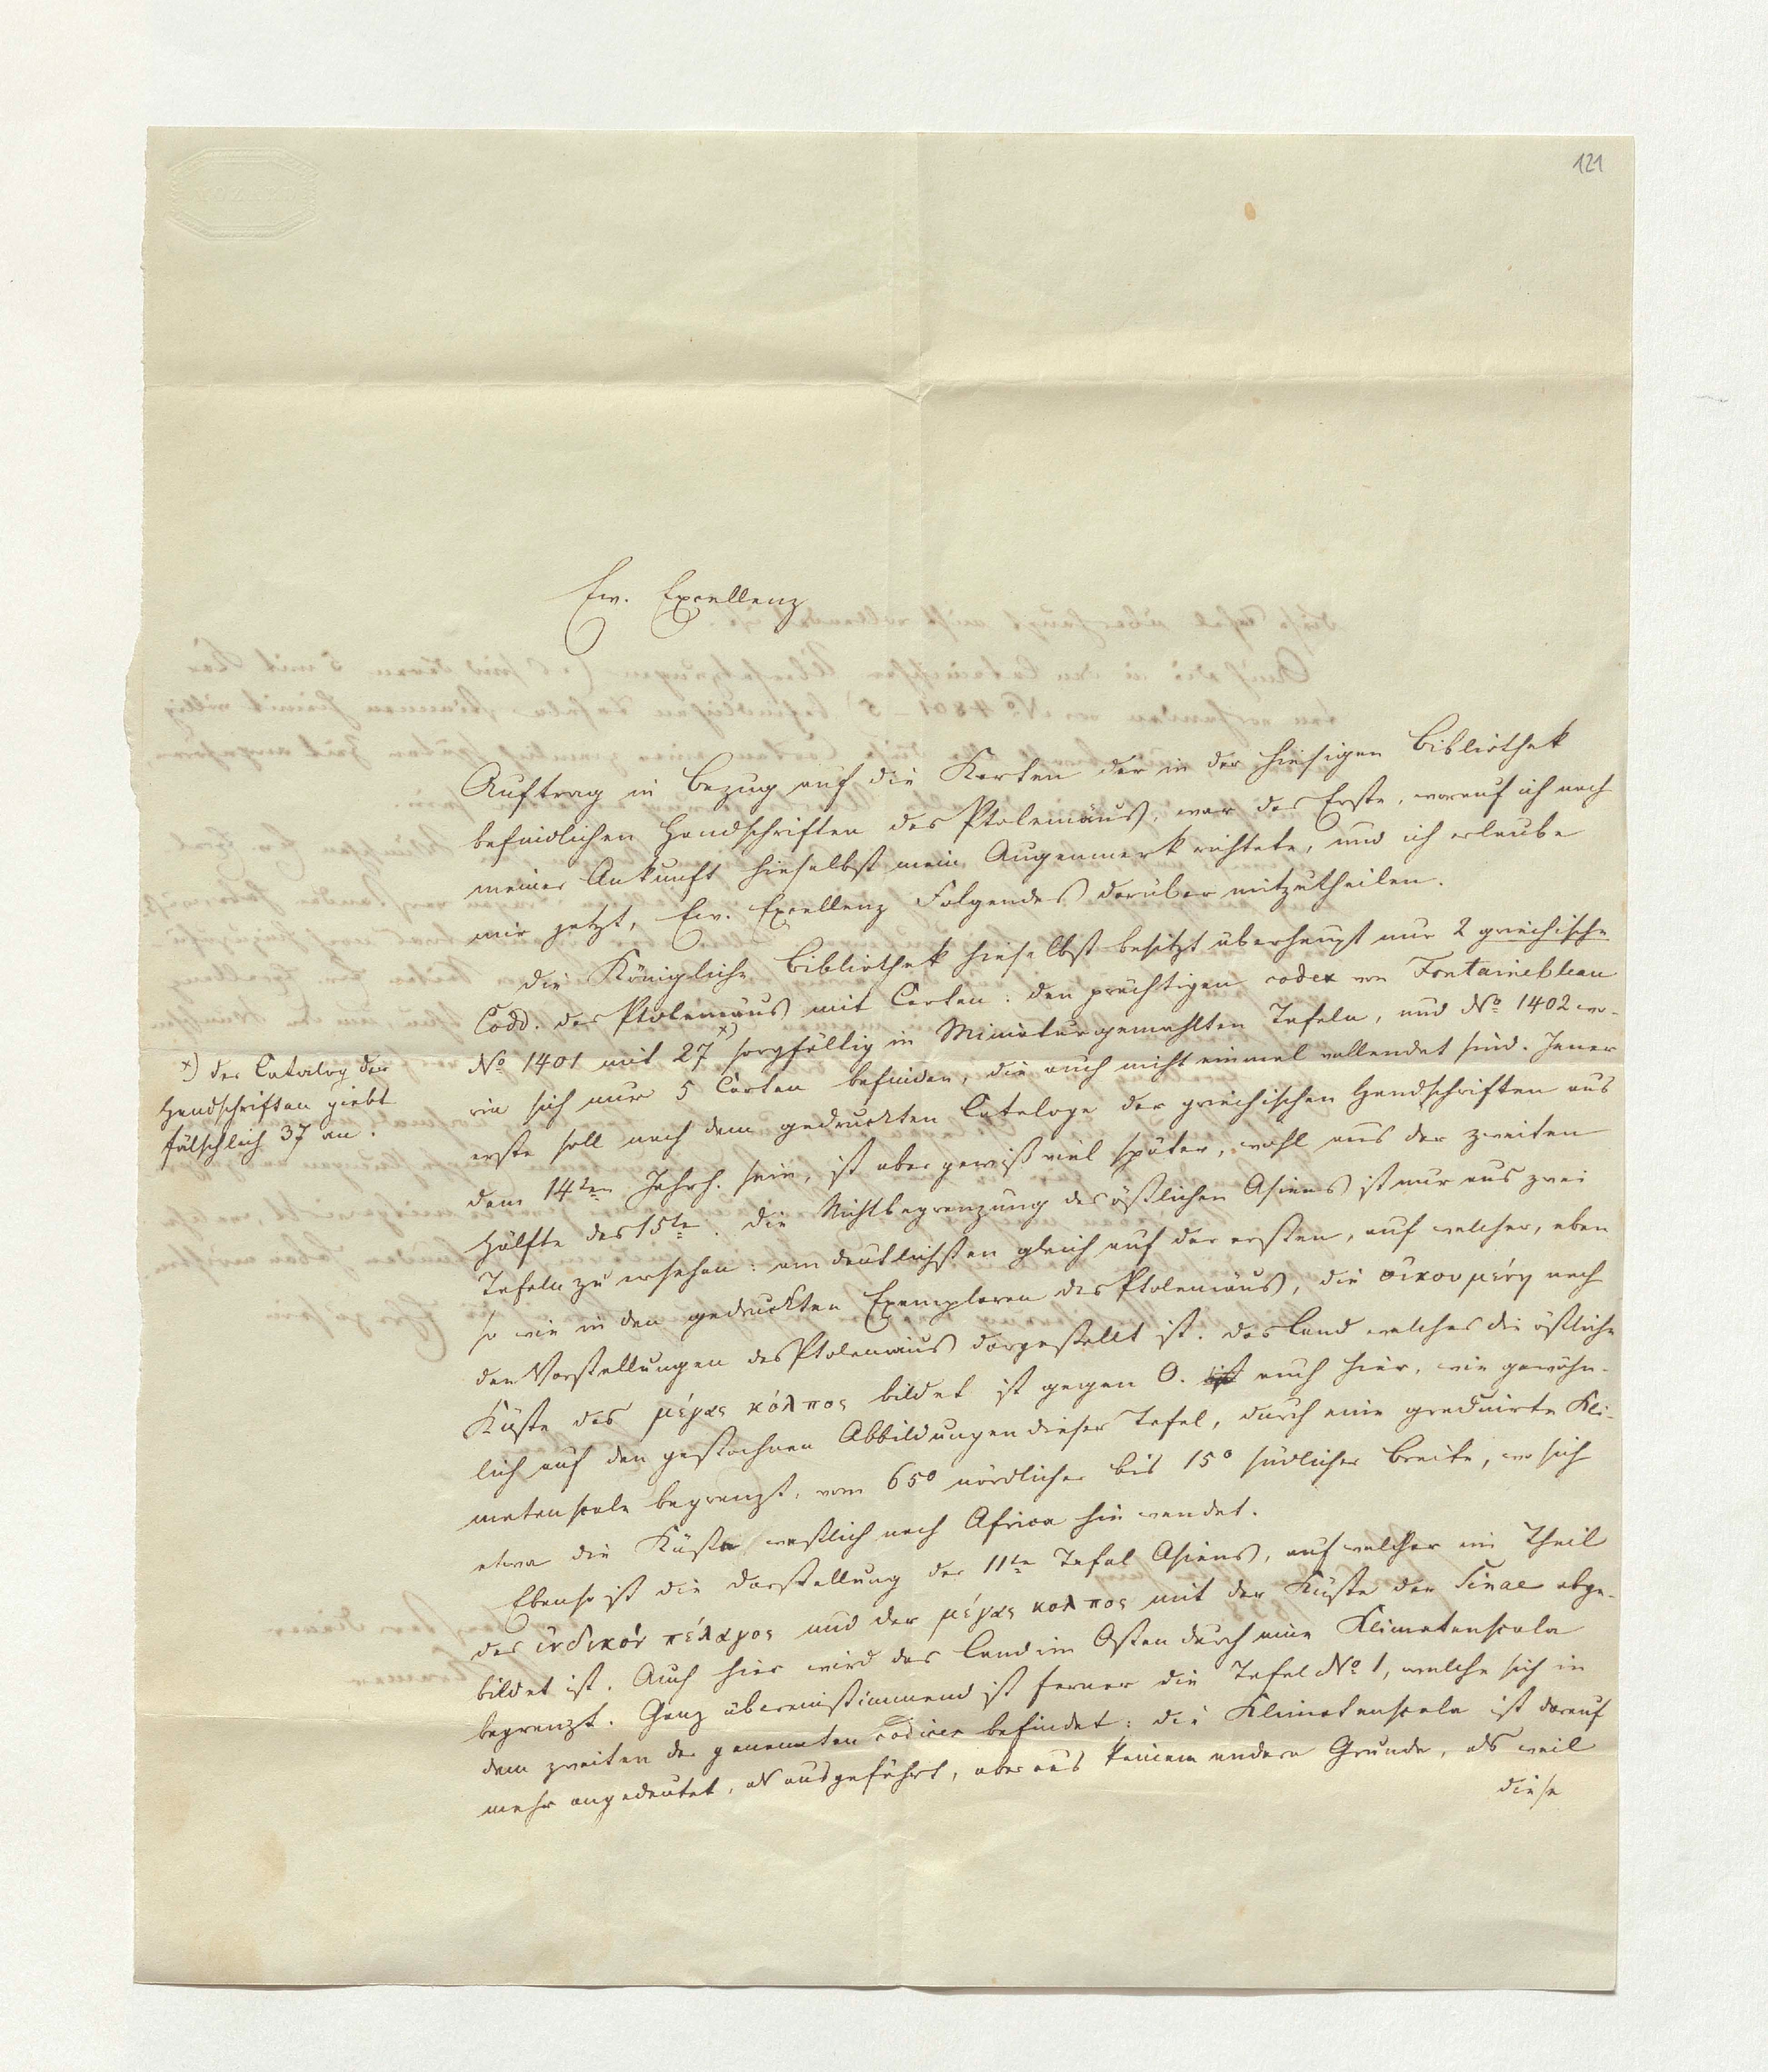 121
Ew. Excellenz
Auftrag in Bezug auf die Karten der in der hiesigen Bibliothek
befindlichen Handschriften des Ptolemäus, war das Erste, worauf ich nach
meiner Ankunft hieselbst mein Augenmerk richtete, und ich erlaube
mir jetzt, Ew. Excellenz Folgendes darüber mitzutheilen.
Die Königliche Bibliothek hieselbst besitzt überhaupt nur 2 griechische
Codd. des Ptolemäus mit Carten: den prächtigen codex von Fontainebleau
No 1401 mit 27 x) sorgfältig in Miniatur gemahlten Tafeln, und No 1402 wo-
x) der Catalog der
Handschriften giebt
fälschlich 37 an.
rin sich nur 5 Carten befinden, die auch nicht einmal vollendet sind. Jener
erste soll nach dem gedruckten Cataloge der griechischen Handschriften aus
dem 14ten Jahrh. sein, ist aber gewiß viel später, wohl aus der zweiten
Hälfte des 15te. Die Nichtbegrenzung des östlichen Asiens ist nur aus zwei
Tafeln zu ersehen: am deutlichsten gleich auf der ersten, auf welcher, eben
so wie in den gedruckten Exemplaren des Ptolemäus, die οἰκουμένη nach
den Vorstellungen des Ptolemäus dargestellt ist. Das Land welches die östliche
Küste des μέγας κόλπος bildet ist gegen O. auch hier, wie gewöhn-
lich auf den gestochnen Abbildungen dieser Tafel, durch eine graduirte Kli-
matenscala begrenzt, vom 65° nördlicher bis 15° südlicher Breite, wo sich
etwa die Küste westlich nach Africa hin wendet.
Ebenso ist die Darstellung der 11te Tafel Asiens, auf welcher ein Theil
des ἰνδικὸν πέλαγος und der μέγας κολπος mit der Küste der Sinae abge-
bildet ist. Auch hier wird das Land im Osten durch eine Klimatenscala
begrenzt. Ganz übereinstimmend ist ferner die Tafel No 1, welche sich in
dem zweiten der genannten codices befindet: die Klimatenscala ist darauf
mehr angedeutet, als ausgeführt, aber aus keinem andern Grunde, als weil
diese